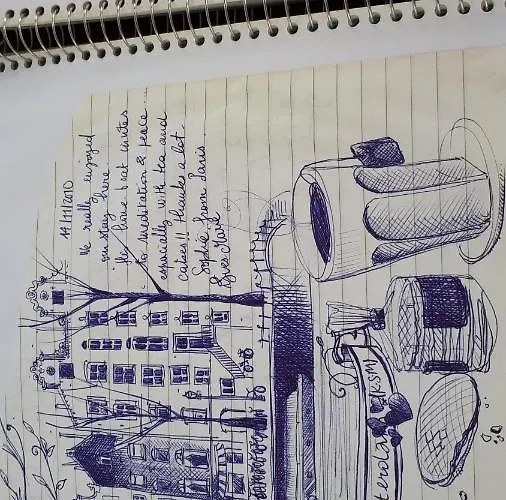 14/11/2010
We really enjoyed
our stay here
The house boat invites
to meditation & peace...
especially with tea and
cakes!! Thanks a lot.
Sophie from Paris